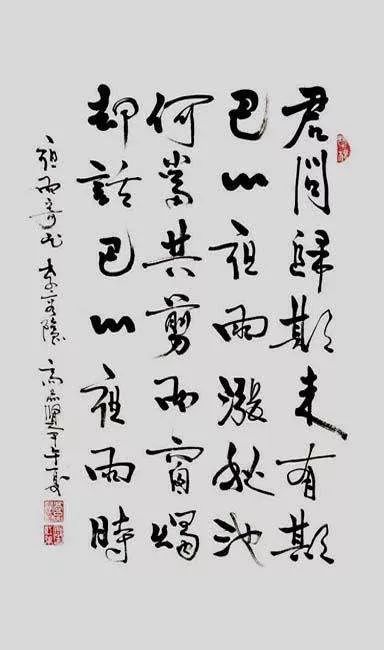 君問歸期未有期
巴山夜雨漲秋池
何當共剪西窗燭
却話巴山夜雨時
夜雨寄北 李商隱 高 甲午夏